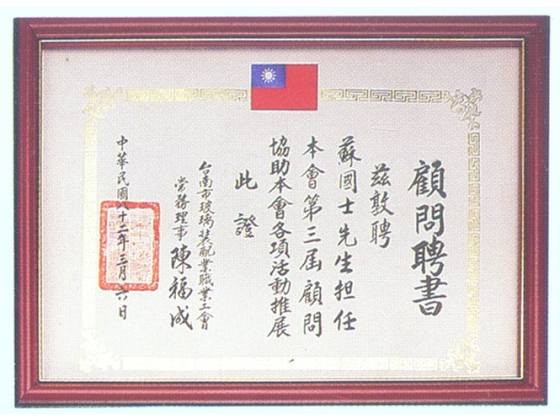 顧問聘書
茲敦聘
蘇國士先生担任
本會第三屆顧問
協助本會各項活動推展
此證
台南市玻璃裝配業職業工會
常務理事 陳福成
中華民國八十二年三月六日